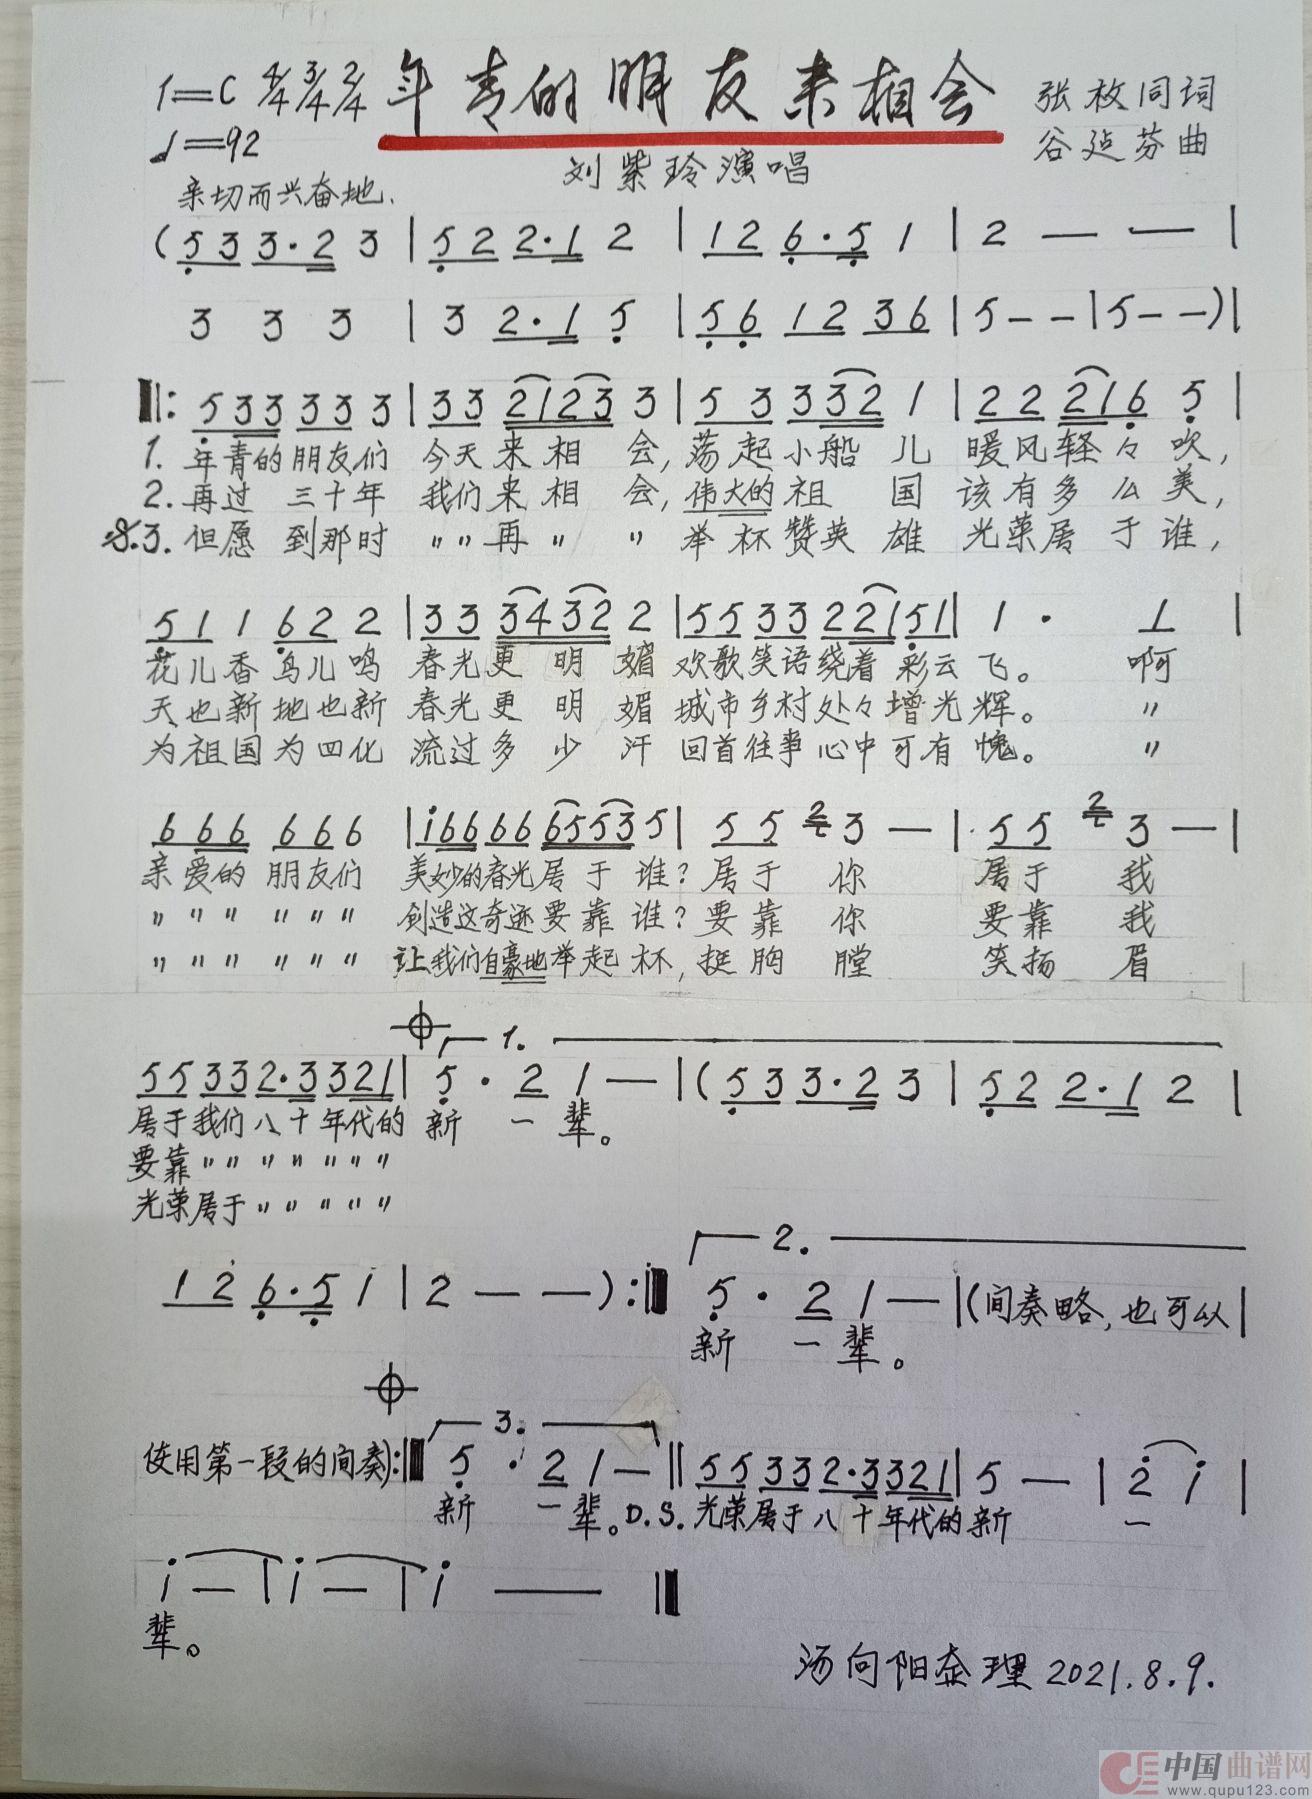 1=C 4/4 3/4 2/4 年青的朋友来相会 张枚同词
♩=92 谷建芬曲
刘紫玲演唱
亲切而兴奋地.
(5 3 3·2 3 | 5 2 2·1 2 | 1 2 6·5 1 | 2 — — |
3 3 3 | 3 2·1 5 | 5 6 1 2 3 6 | 5 - - | 5 - - ) |
‖: 5 3 3 3 3 3 | 3 3 2 1 2 3 3 | 5 3 3 3 2 1 | 2 2 2 1 6 5 |
1. 年青的朋友们 今天来相会, 荡起小船儿 暖风轻々吹,
2. 再过三十年 我们来相会, 伟大的祖国 该有多么美,
𝄋.3. 但愿到那时 〃〃再〃〃 举杯赞英雄 光荣属于谁,
5 1 1 6 2 2 | 3 3 3 4 3 2 2 | 5 5 3 3 2 2 1 5 1 | 1 · 1 |
花儿香鸟儿鸣 春光更明媚 欢歌笑语绕着彩云飞。 啊
天也新地也新 春光更明媚 城市乡村处々增光辉。 〃
为祖国为四化 流过多少汗 回首往事心中可有愧。 〃
6 6 6 6 6 6 | i 6 6 6 6 6 5 5 3 5 | 5 5 2 3 — | 5 5 2 3 — |
亲爱的朋友们 美妙的春光属于谁? 属于你 属于我
〃〃〃〃〃〃 创造这奇迹要靠谁? 要靠你 要靠我
〃〃〃〃〃〃 让我们自豪地举起杯, 挺胸膛 笑扬眉
1.
5 5 3 3 2·3 3 2 1 | 5 · 2 1 — | (5 3 3·2 3 | 5 2 2·1 2 |
属于我们八十年代的 新一辈。
要靠〃〃〃〃〃〃〃
光荣属于〃〃〃〃〃
2.
1 2 6·5 1 | 2 — — ) :‖ 5 · 2 1 — | (间奏略, 也可以 |
新一辈。
3.
使用第一段的间奏) :‖ 5 · 2 1 — ‖ 5 5 3 3 2·3 3 2 1 | 5 — | 2 i |
新一辈。D.S. 光荣属于八十年代的新 一
i — | i — | i — ‖
辈。
汤向阳整理 2021.8.9.
中国曲谱网
www.qupu123.com